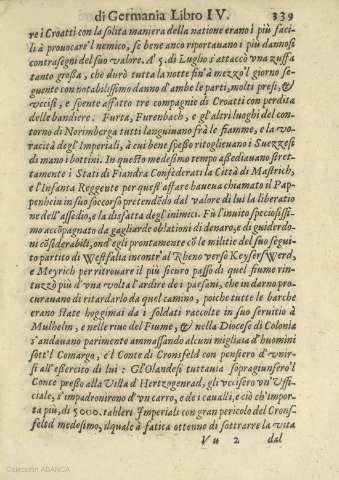 di Germania Libro IV. 339
re i Croatti con la solita maniera della natione erano i più faci-
li à prouocare'l nemico, se bene anco riportauano i più dannosi
contrasegni del suo valore. A' 5. di Luglio s'attaccò vna zuffa
tanto großa, che durò tutta la notte fin'à mezzo'l giorno se-
guente con notabilissimo danno d'ambe le parti, molti presi, &
vccisi, e spente affatto tre compagnie di Croatti con perdita
delle bandiere. Furta, Furenbach, e gl'altri luoghi del con-
torno di Norimberga tutti languiuano frà le fiamme, e la vo-
racità degl'Imperiali, à cui bene speßo ritoglieuano i Suezzesi
di mano i bottini. In questo medesimo tempo aßediauano stret-
tamente i Stati di Fiandra Confederati la Città di Mastrich,
e l'Infanta Reggente per quest'affare haueua chiamato il Pap-
penhein in suo soccorso pretendẽdo dal valore di lui la liberatio
ne dell'assedio, e la disfatta degl'inimici. Fù l'inuito speciosissi-
mo accõpagnato da gagliarde oblationi di denaro, e di guiderdo-
ni cõsiderabili, ond'egli prontamente cõ le militie del suo segui-
to partito di Westfalia incontr'al Rheno verso KeyserWerd,
e Meyrich per ritrouare il più sicuro passo di quel fiume rin-
tuzzò più d'vna volta l'ardire de i paesani, che indarno pro-
curauano di ritardarlo da quel camino, poiche tutte le barche
erano state hoggimai da i soldati raccolte in suo seruitio à
Mulhelm, e nelle riue del Fiume, & nella Diocese di Colonia
s'andauano parimente ammassando alcuni migliaia d'huomini
sott'l Comargo, e'l Conte di Cronsfeld con pensiero d'vnir-
si all'eßercito di lui: Gl'Olandesi tuttauia sopragiunsero'l
Conte preßo alla Villa d'Hertzogenrad, gli vccisero vn'Uffi-
ciale, s'impadronirono d'vn carro, e de i caualli, e ciò ch'impor-
ta più, di 5000. talleri Imperiali con gran pericolo del Crons-
feltd medesimo, ilquale à fatica ottenne di sottrarre la vita
Vu 2 dal
Colección ABANCA